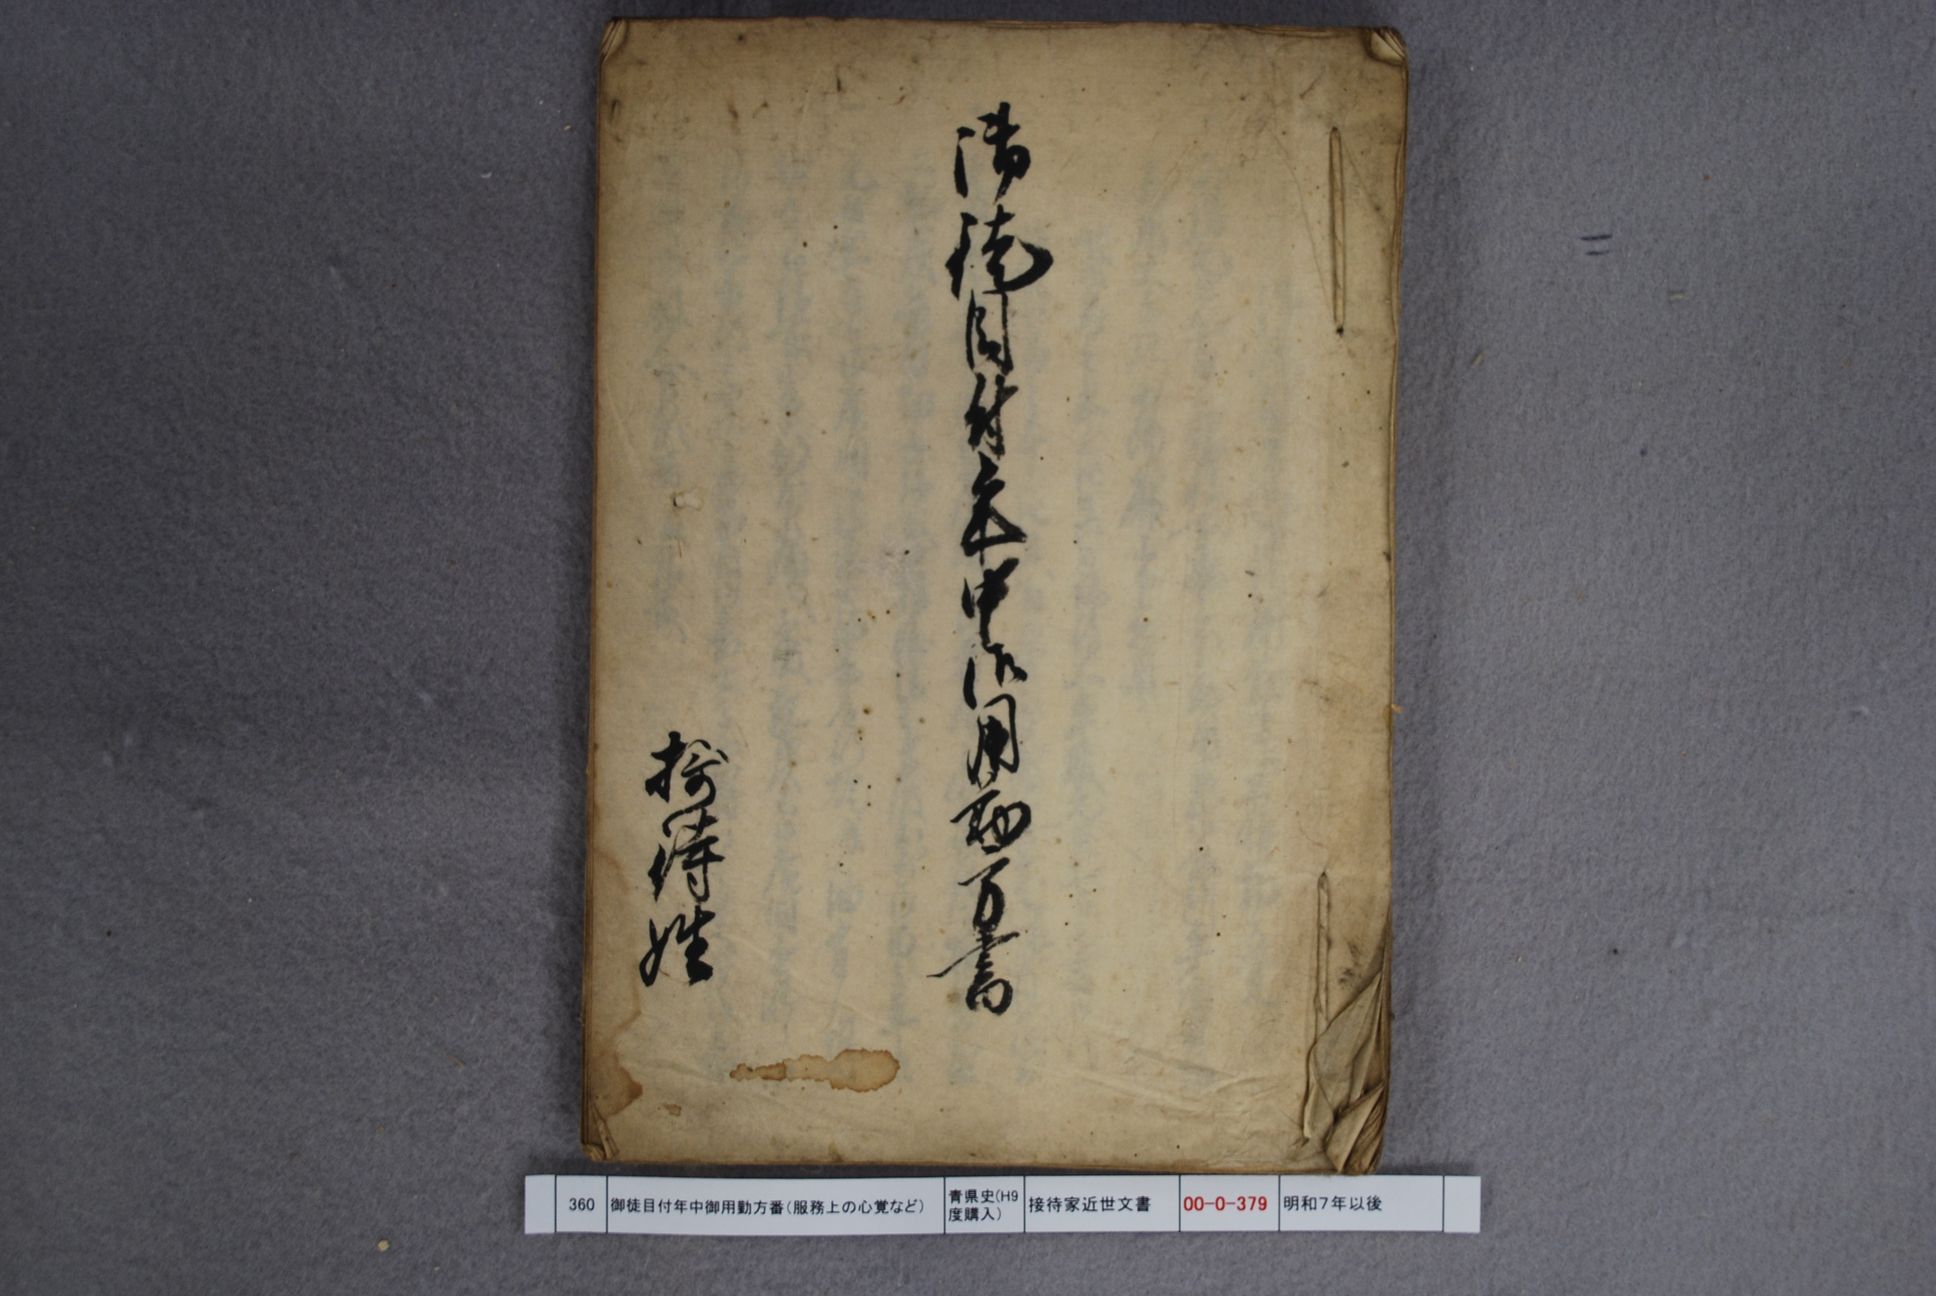 御徒目付年中御用勤方書
接待姓
360 御徒目付年中御用勤方番(服務上の心覚など) 青県史(H9度購入) 接待家近世文書 00-0-379 明和7年以後